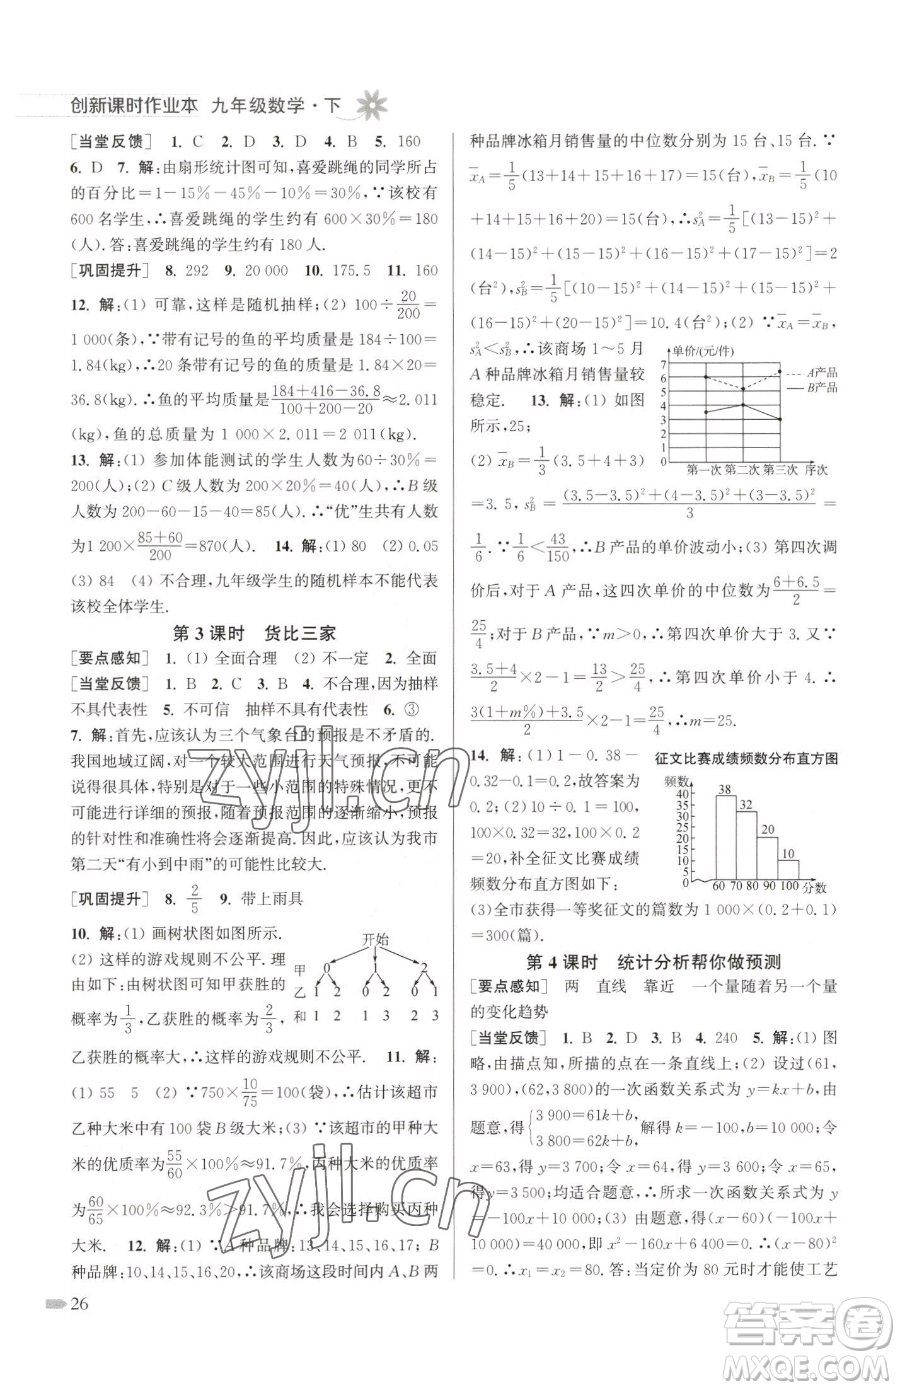 创新课时作业本 九年级数学·下
[当堂反馈] 1. C 2. D 3. D 4. B 5. 160
6. D 7. 解:由扇形统计图可知,喜爱跳绳的同学所占
的百分比=1-15%-45%-10%=30%,∵该校有
600名学生,∴喜爱跳绳的学生约有600×30%=180
(人).答:喜爱跳绳的学生约有180人.
[巩固提升] 8. 292 9. 20 000 10. 175.5 11. 160
12. 解:(1) 可靠,这样是随机抽样;(2) 100÷20/200=
1 000(条),∵带有记号的鱼的平均质量是184÷100=
1.84(kg),∴20条带有记号的鱼的总质量是1.84×20=
36.8(kg).∴鱼的平均质量是(184+416-36.8)/(100+200-20)≈2.011
(kg),鱼的总质量为1 000×2.011=2 011(kg).
13. 解:(1) 参加体能测试的学生人数为60÷30%=
200(人);(2) C级人数为200×20%=40(人),∴B级
人数为200-60-15-40=85(人).∴“优”生共有人数
为1 200×(85+60)/200=870(人). 14. 解:(1) 80 (2) 0.05
(3) 84 (4) 不合理,九年级学生的随机样本不能代表
该校全体学生.
第3课时 货比三家
[要点感知] 1. (1) 全面合理 (2) 不一定 2. 全面
[当堂反馈] 1. B 2. C 3. B 4. 不合理,因为抽样
不具代表性 5. 不可信 抽样不具有代表性 6. ③
7. 解:首先,应该认为三个气象台的预报是不矛盾的.
我国地域辽阔,对一个大范围进行天气预报,要做到
细致很难,特别是对于一些小范围的特殊情况,更不可
能进行详细的预报.随着预报范围的逐渐缩小,预报
的针对性和准确性将会逐渐提高.应该认为我市
第二天“有小到中雨”的可能性比较大.
[巩固提升] 8. 2/5 9. 带上雨具
10. 解:(1) 画树状图如图所示.
(2) 这样的游戏规则不公平.理
由:由树状图可知甲获胜的概
率为1/3,乙获胜的概率为2/3,
乙获胜的概率大,∴这样的游戏规则不公平. 11. 解:
(1) 55 5 (2) ∵750×10/75=100(袋),∴估计该超市
乙种大米中有100袋B级大米;(3) ∵超市的甲种大
米的优质率为55/60×100%≈91.7%,乙种大米的优质率
为60/65×100%≈92.3%>91.7%,∴我会选择购买丙种
大米. 12. 解:(1) ∵A种品牌:13、14、15、16、17; B种
品牌:10、14、15、16、20,∴该商场这段时间内A、B两
开始
甲 0 1 2
乙 1 2 0 2 0 1
和 1 2 1 3 2 3
26
种品牌冰箱月销售量的中位数分别为15台、15台.∵
x̄_A=1/5(13+14+15+16+17)=15(台),x̄_B=1/5(10
+14+15+16+20)=15(台),∴s²_A=1/5[(13-15)²+
(14-15)²+(15-15)²+(16-15)²+(17-15)²]=2
(台²),s²_B=1/5[(10-15)²+(14-15)²+(15-15)²+
(16-15)²+(20-15)²]=10.4(台²);(2) ∵x̄_A=x̄_B,
s²_A<s²_B,∴该商场1~5月
A种品牌冰箱月销售量较
稳定. 13. 解:(1) 如图
所示,25;
(2) x̄_B=1/3(3.5+4+3)
单价/(元/件)
7
6
5
4
3
2
1
0
A产品
B产品
第一次 第二次 第三次 序次
=3.5,s²_B=((3.5-3.5)²+(4-3.5)²+(3-3.5)²)/3=
1/6.∵1/6<43/150,∴B产品的单价波动小;(3) 第四次调
价后,对于A产品,这四次单价的中位数为(6+6.5)/2=
25/4;对于B产品,∵m>0,∴第四次单价大于3.又∵
(3.5+4)/2×2-1=13/2>25/4,∴第四次单价小于4.∴
(3(1+m%)+3.5)/2×2-1=25/4,∴m=25.
14. 解:(1) 1-0.38-
0.32-0.1=0.2,故答案为
0.2;(2) 10÷0.1=100,
100×0.32=32,100×0.2
=20,补全征文比赛成绩
频数分布直方图如下:
(3)全市获得一等奖征文的篇数为1 000×(0.2+0.1)
=300(篇).
征文比赛成绩频数分布直方图
频数
40
35
30
25
20
15
10
5
0
38
32
20
10
60 70 80 90 100 分数
第4课时 统计分析帮你做预测
[要点感知] 两 直线 靠近 一个量随着另一个量
的变化趋势
[当堂反馈] 1. B 2. D 3. B 4. 240 5. 解:(1) 图
略,由描点知,所描的点在一条直线上;(2) 设过(61,
3 900),(62,3 800)的一次函数关系式为y=kx+b,由
题意,得{3 900=61k+b, 3 800=62k+b,解得k=-100,b=10 000.当
x=63,得y=3 700;当x=64,得y=3 600;当x=65,得
y=3 500;均适合题意,∴所求一次函数关系式为y=
-100x+10 000;(3) 由题意,得-100x²+14 000x-
400 000=240 000,即x²-160x+6 400=0,解得,得
x₁=x₂=80.答:当定价为80元时才能使工艺
zyjl.cn
zyjl.cn
答案圈
MXQE.COM